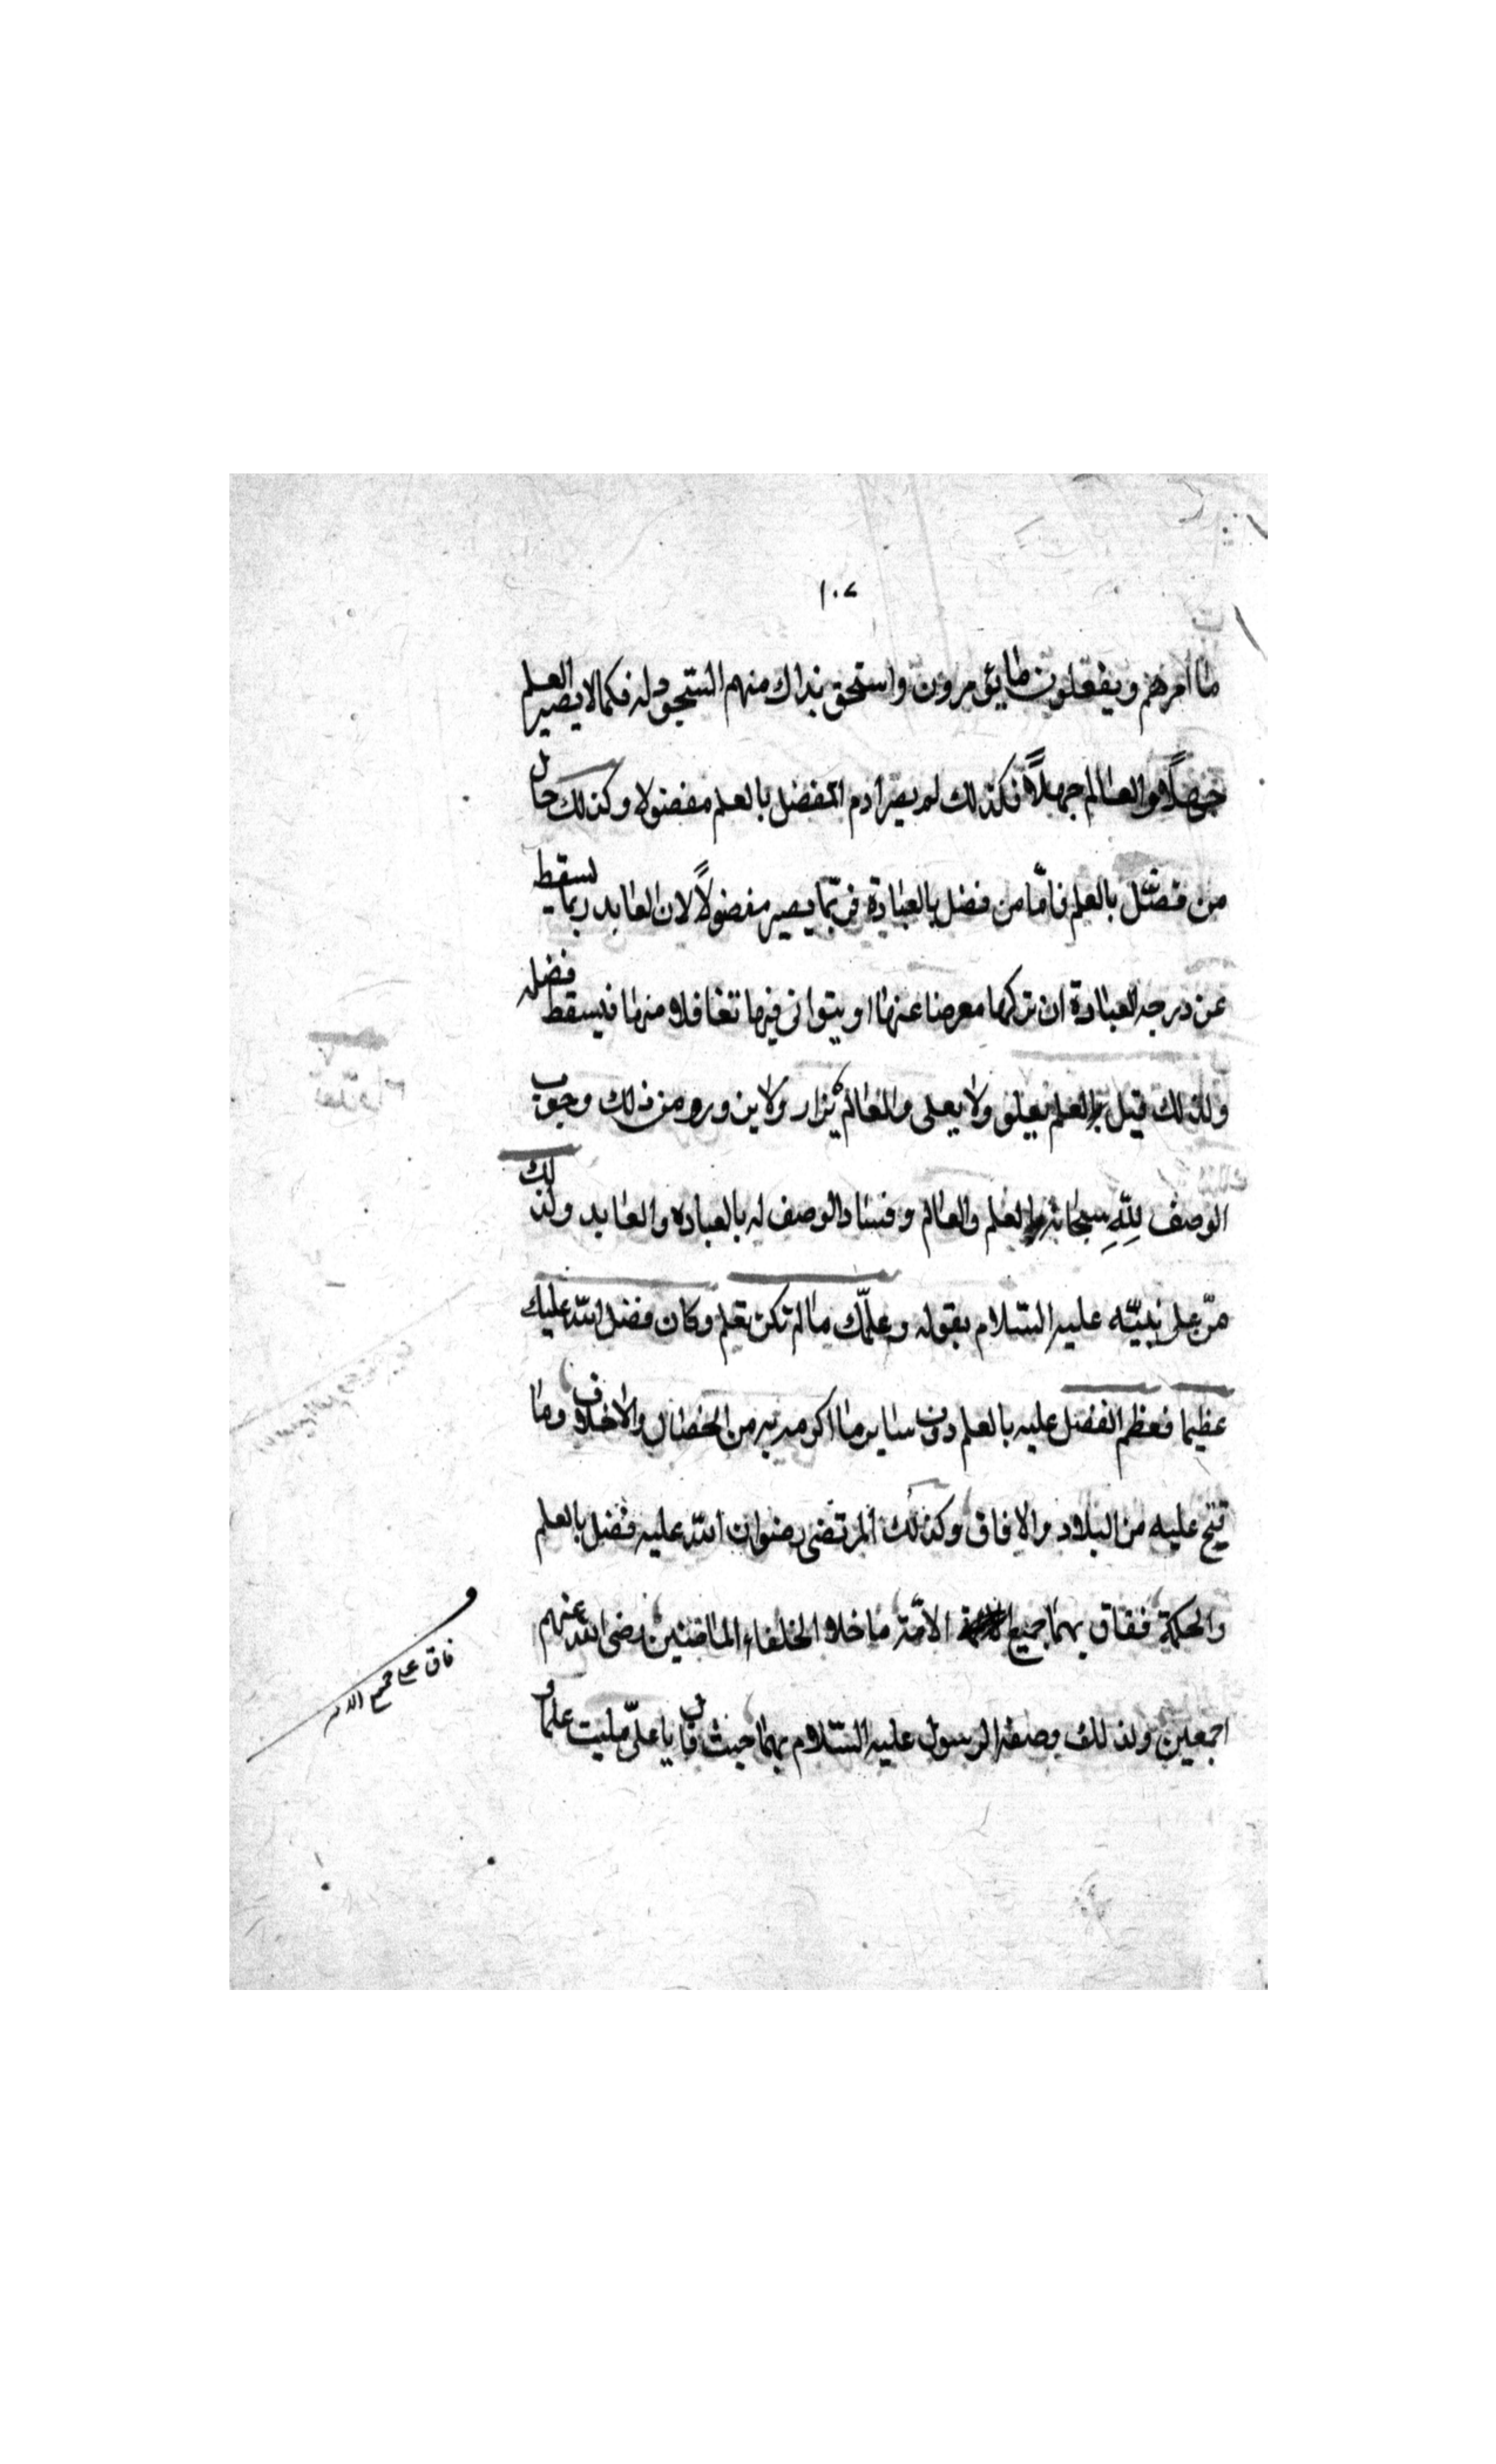 ١٠٧
ما امرهم ويفعلون ما يؤمرون واستحق بذاك منهم السجود له فكما لا يصير العلم
جهلا والعالم جهلاً فكذلك لم يصر ادم المفضل بالعلم مفضولا وكذلك حال
من فضّل بالعلم فامّا من فضل بالعبادة فربّما يصير مفضولاً لان العابد ربما يسقط
عن درجه العبادة ان تركها معرضا عنها او يتوانى فيها تغافلا منها فيسقط فضله
ولذلك قيل العلم يعلو ولا يعلى والعالم يزار ولا يزور ومن ذلك وجوب
الوصف للّه سبحانه بالعلم والعالم وفساد الوصف له بالعباده والعابد ولذلك
منّ على نبيّه عليه السّلام بقوله وعلّمك ما لم تكن تعلم وكان فضل الله عليك
عظيما فعظم الفضل عليه بالعلم دون ساير ما اكرمه به من الخصال والاخلاق وما
فتح عليه من البلاد والافاق وكذلك المرتضى رضوان الله عليه فضل بالعلم
والحكمة ففاق بهما جميع الامّة ما خلا الخلفاء الماضين رضى الله عنهم
اجمعين ولذلك وصفه الرسول عليه السّلام بهما حيث قال يا علىّ مليت علما و
فاق على جميع الامه